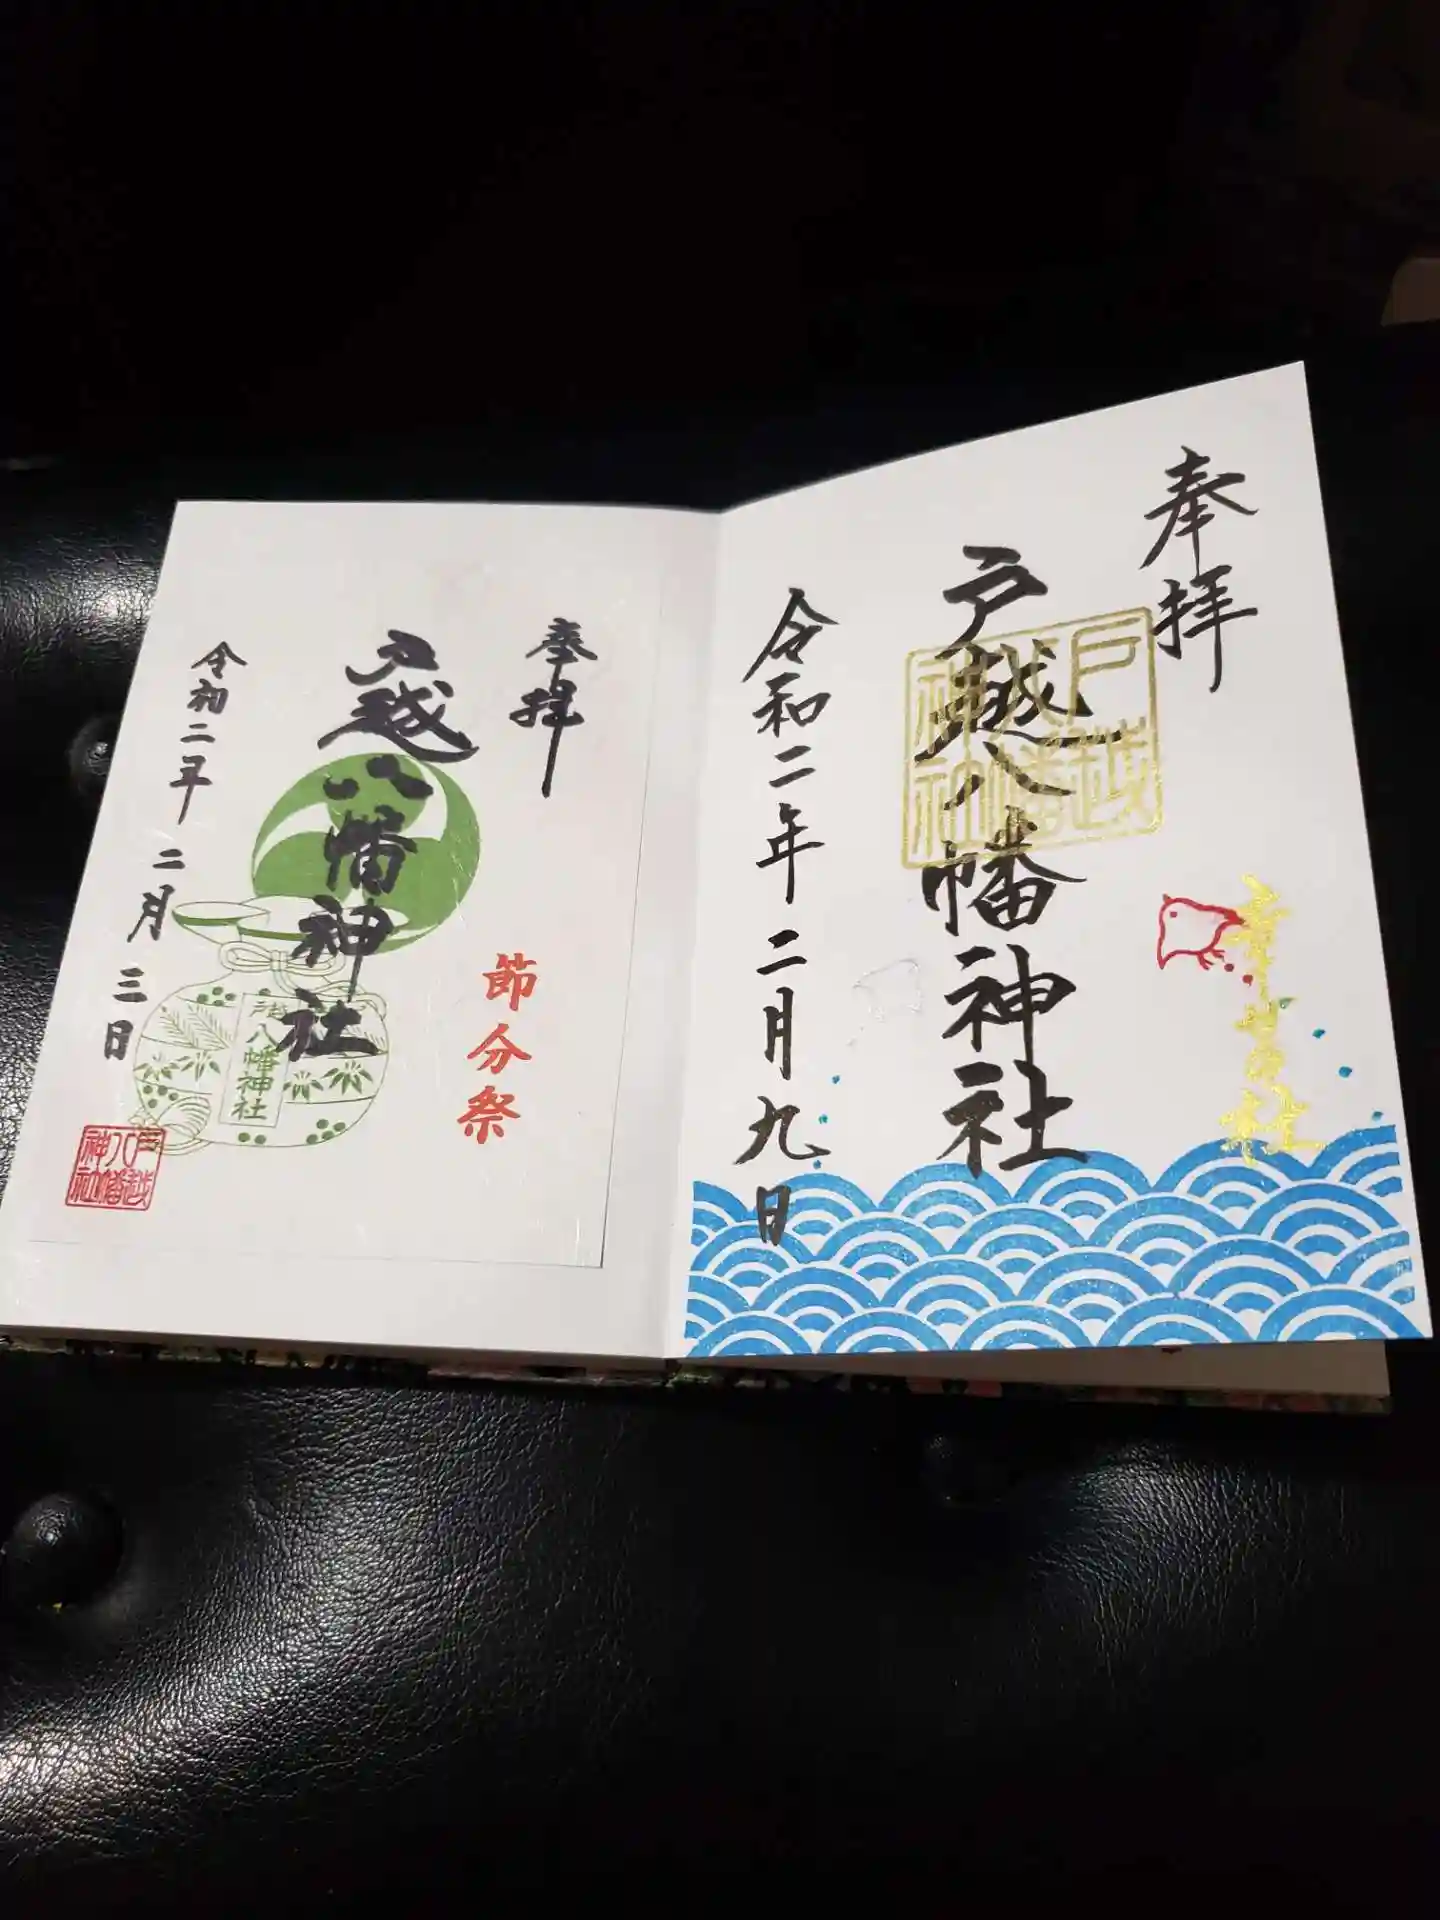 奉拝
戸越八幡神社
戸越八幡神社
令和二年二月九日
奉拝
節分祭
戸越八幡神社
戸越八幡神社
令和二年二月三日
戸越八幡神社